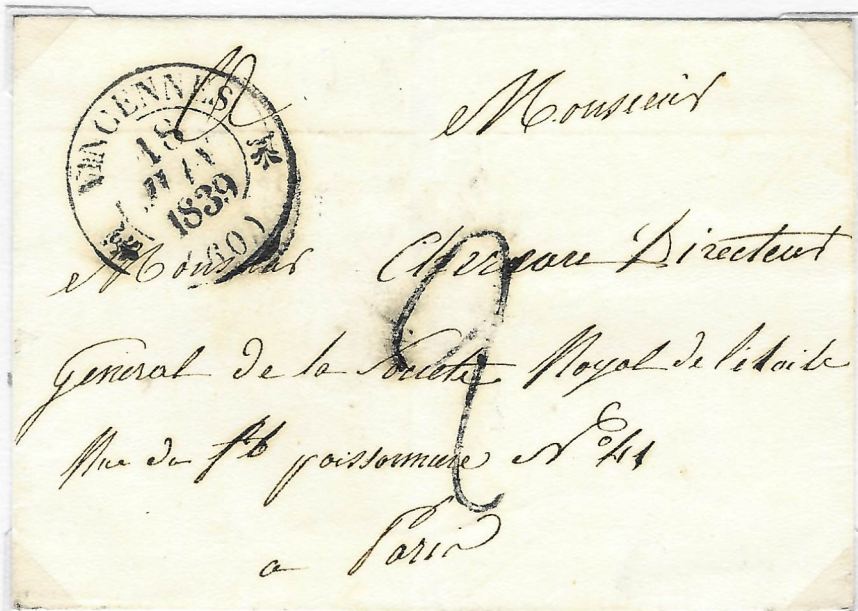 VINCENNES
18
JUIN
1839
(60)
Monsieur
Monsieur Directeur
Général de la Société Royal de l'étoile
Rue du fb poissonnière No 41
a Paris
2